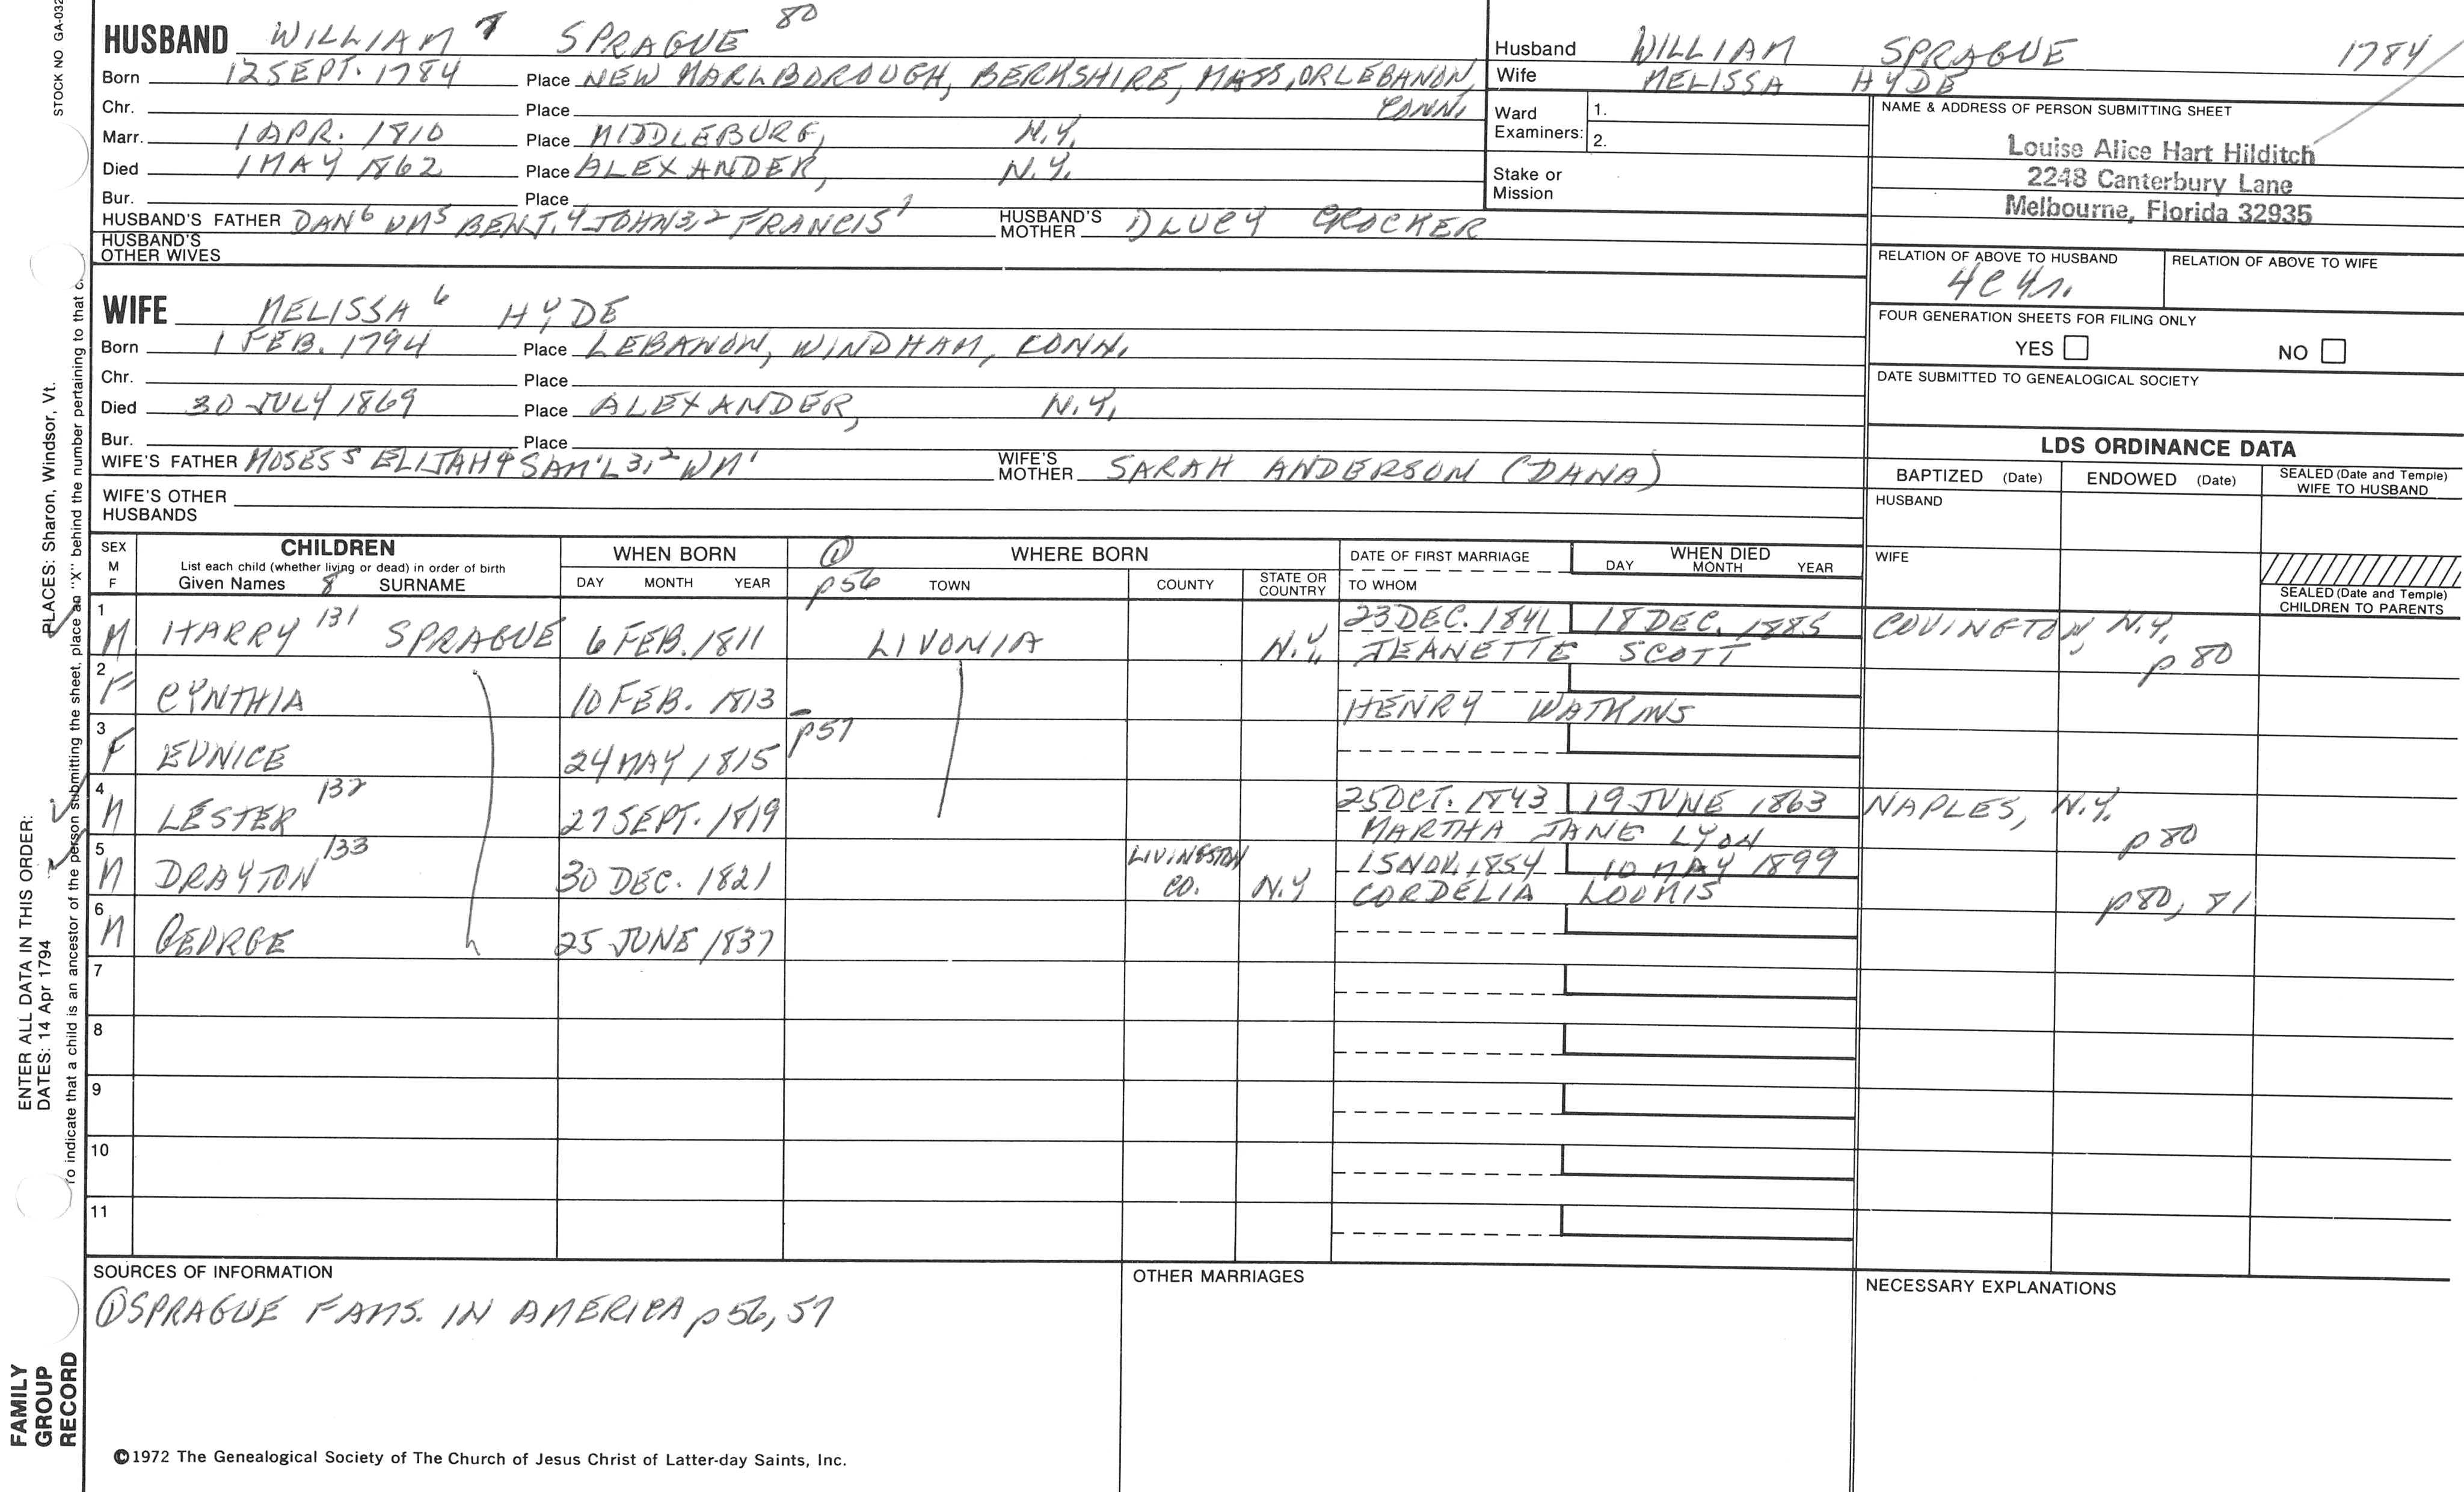 STOCK NO GA-032
HUSBAND WILLIAM 7 SPRAGUE 80
Born 12 SEPT. 1784 Place NEW MARLBOROUGH, BERKSHIRE, MASS, OR LEBANON, CONN.
Chr. Place
Marr. 1 APR. 1810 Place MIDDLEBURG, N.Y.
Died 1 MAY 1862 Place ALEXANDER, N.Y.
Bur. Place
HUSBAND'S FATHER DAN6 WM5 BENJ.4 JOHN3,2 FRANCIS1 HUSBAND'S MOTHER DLUCY CROCKER
HUSBAND'S OTHER WIVES
WIFE MELISSA 6 HYDE
Born 1 FEB. 1794 Place LEBANON, WINDHAM, CONN.
Chr. Place
Died 30 JULY 1869 Place ALEXANDER, N.Y.
Bur. Place
WIFE'S FATHER MOSES5 ELIJAH4 SAM'L3,2 WM1 WIFE'S MOTHER SARAH ANDERSON (DANA)
WIFE'S OTHER HUSBANDS
Husband WILLIAM SPRAGUE 1784
Wife MELISSA HYDE
Ward Examiners: 1.
2.
Stake or Mission
NAME & ADDRESS OF PERSON SUBMITTING SHEET
Louise Alice Hart Hilditch
2248 Canterbury Lane
Melbourne, Florida 32935
RELATION OF ABOVE TO HUSBAND RELATION OF ABOVE TO WIFE
4C4r.
FOUR GENERATION SHEETS FOR FILING ONLY
YES NO
DATE SUBMITTED TO GENEALOGICAL SOCIETY
LDS ORDINANCE DATA
BAPTIZED (Date) ENDOWED (Date) SEALED (Date and Temple) WIFE TO HUSBAND
HUSBAND
WIFE
SEALED (Date and Temple) CHILDREN TO PARENTS
SEX M F
CHILDREN
List each child (whether living or dead) in order of birth
Given Names 8 SURNAME
WHEN BORN
DAY MONTH YEAR
① p56
WHERE BORN
TOWN COUNTY STATE OR COUNTRY
DATE OF FIRST MARRIAGE
TO WHOM
WHEN DIED
DAY MONTH YEAR
1 M HARRY 131 SPRAGUE 6 FEB. 1811 LIVONIA N.Y. 23 DEC. 1841 18 DEC. 1885 COVINGTON, N.Y.
JEANETTE SCOTT p 80
2 F CYNTHIA 10 FEB. 1813
HENRY WATKINS
3 F EUNICE 24 MAY 1815 p57
4 M LESTER 132 27 SEPT. 1819 25 OCT. 1843 19 JUNE 1863 NAPLES, N.Y.
MARTHA JANE LYON p 80
5 M DRAYTON 133 30 DEC. 1821 LIVINGSTON CO. N.Y 15 NOV. 1854 10 MAY 1899
CORDELIA LOOMIS p80, 81
6 M GEORGE 25 JUNE 1837
7
8
9
10
11
SOURCES OF INFORMATION
①SPRAGUE FAMS. IN AMERICA p 56, 57
OTHER MARRIAGES
NECESSARY EXPLANATIONS
©1972 The Genealogical Society of The Church of Jesus Christ of Latter-day Saints, Inc.
FAMILY
GROUP
RECORD
ENTER ALL DATA IN THIS ORDER:
DATES: 14 Apr 1794
PLACES: Sharon, Windsor, Vt.
To indicate that a child is an ancestor of the person submitting the sheet, place an "X" behind the number pertaining to that